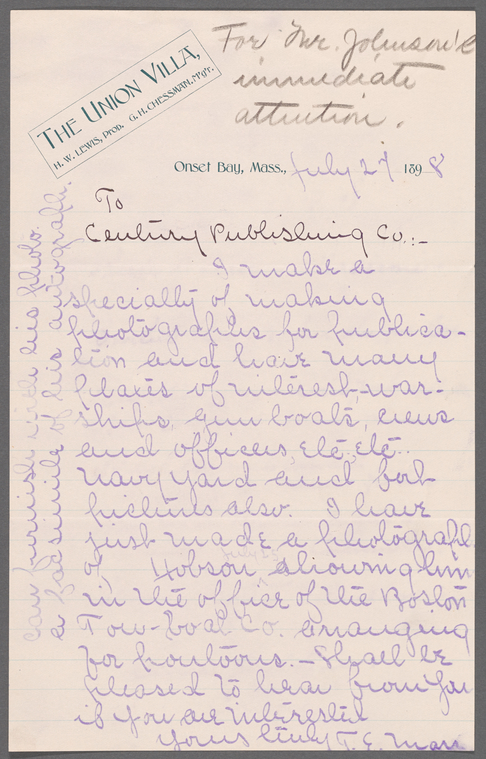 For Mr. Johnson's
immediate
attention.
THE UNION VILLA,
H. W. LEWIS, Prop. G. H. CHESSMAN, M'g'r.
Onset Bay, Mass., July 27 1898
To
Century Publishing Co.:-
I make a
specialty of making
photographs for publica-
tion and have many
plates of interest, war-
ships, gun boats, crews
and officers, etc. etc..
navy yard and
pictures also. I have
just made a photograph
July
of Hobson showing him
in the office of the Boston
Tow-boat Co. arranging
for pontoons. - Shall be
pleased to hear from you
if you are interested
Yours truly T. E. Marr
Can furnish with his photo.
a facsimile of his autograph.